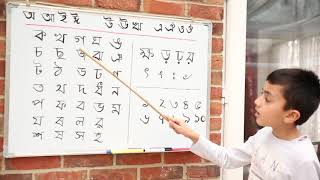 অ আ ই ঈ উ ঊ ঋ এ ঐ ও ঔ
ক খ গ ঘ ঙ
চ ছ জ ঝ ঞ
ট ঠ ড ঢ ণ
ত থ দ ধ ন
প ফ ব ভ ম
য র ল
শ ষ স হ
ক্ষ ড় ঢ় য়
ৎ ং ঃ ঁ
১ ২ ৩ ৪ ৫
৬ ৭ ৮ ৯ ১০